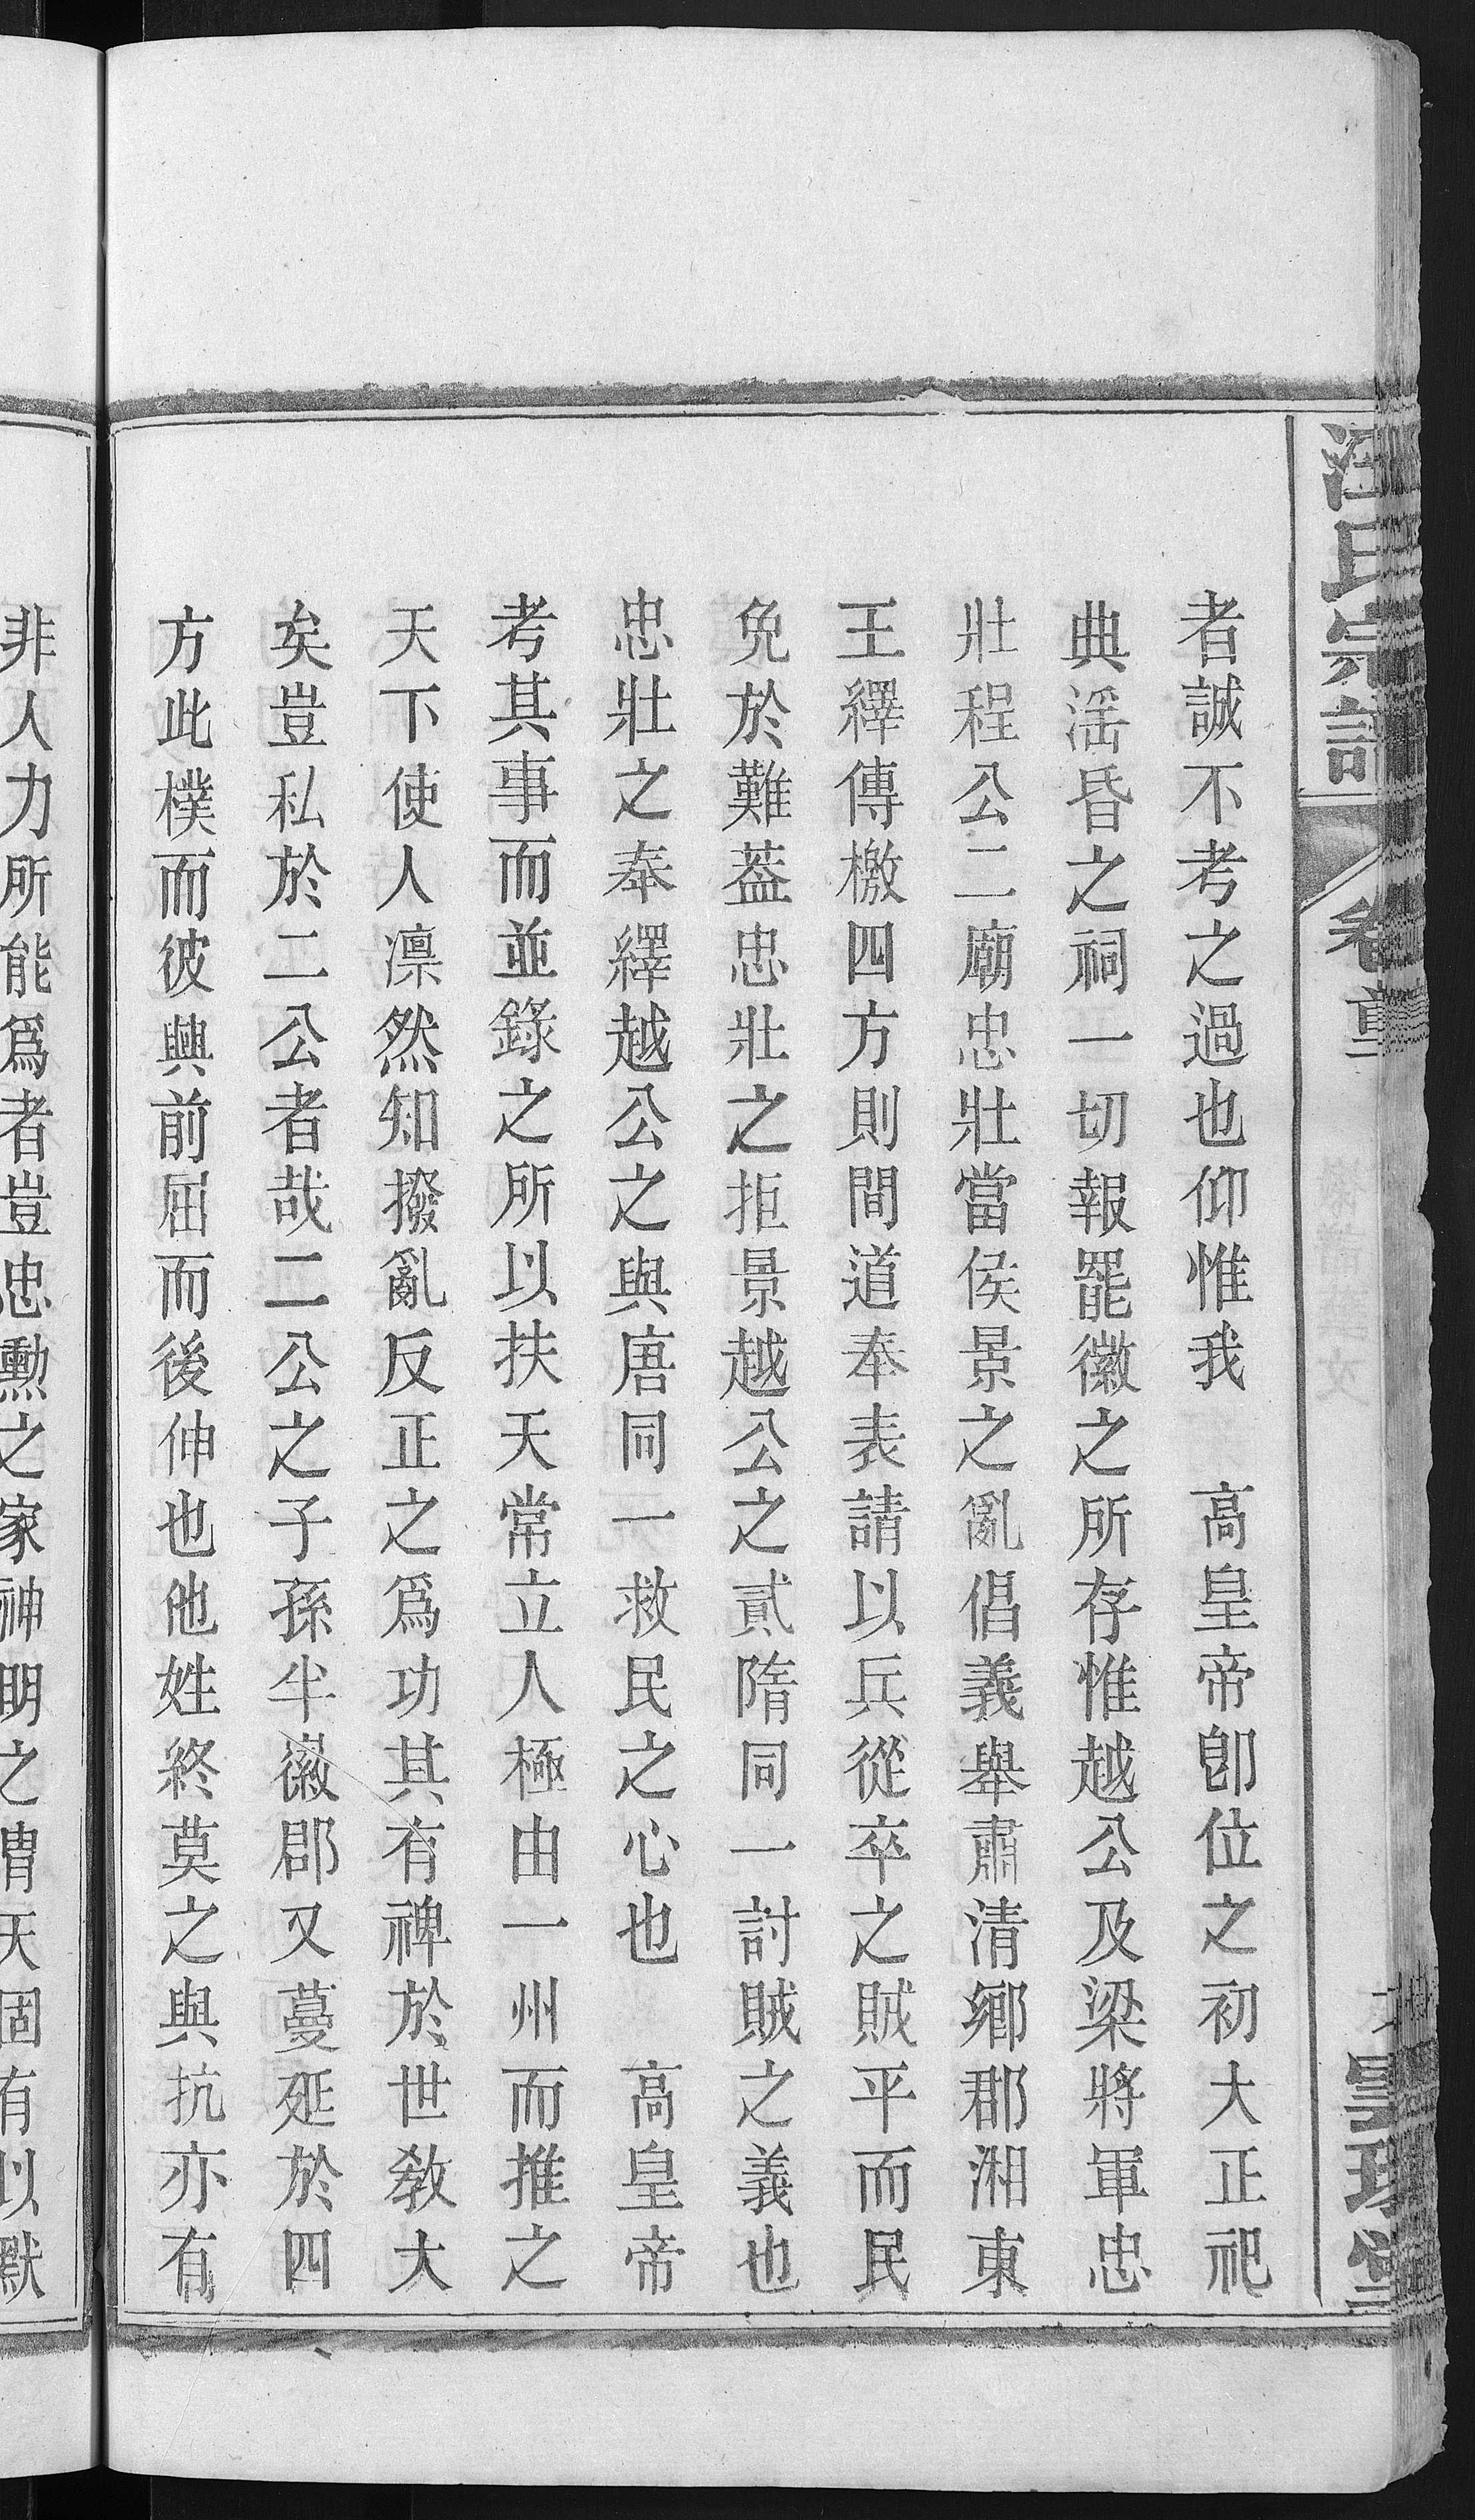 汪氏宗譜
卷首
者誠不考之過也仰惟我　高皇帝卽位之初大正祀
典滛昏之祠一切報罷徽之所存惟越公及梁將軍忠
壯程公二廟忠壯當侯景之亂倡義舉肅清鄉郡湘東
王繹傳檄四方則間道奉表請以兵從卒之賊平而民
免於難葢忠壯之拒景越公之貳隋同一討賊之義也
忠壯之奉繹越公之與唐同一救民之心也　高皇帝
考其事而並錄之所以扶天常立人極由一州而推之
天下使人凛然知撥亂反正之爲功其有裨於世敎大
矣豈私於二公者哉二公之子孫半徽郡又蔓延於四
方此樸而彼興前屈而後伸也他姓終莫之與抗亦有
非人力所能爲者豈忠勲之家神明之胄天固有以默